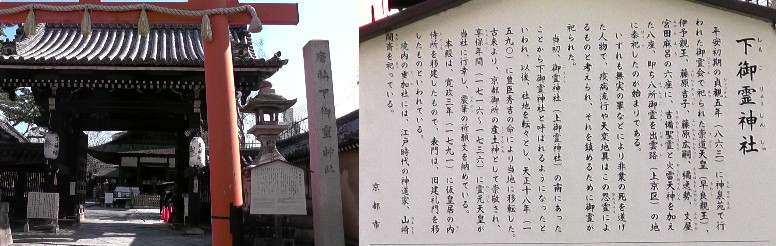 府社 下御靈神社
下御霊神社
しもごりょうじんじゃ
平安初期の貞観五年(八六三)に神泉苑で行
われた御霊会で祀られた崇道天皇(早良親王)、
伊予親王、藤原吉子、藤原広嗣、橘逸勢、文屋
宮田麻呂の六座に、吉備聖霊と火雷天神を加え
た八座、即ち八所御霊を出雲路(上京区)の地
に奉祀したのが始まりである。
いずれも無実の罪などにより非業の死を遂げ
た人物で、疫病流行や天変地異はこの怨霊によ
るものと考えられ、それを鎮めるために御霊が
祀られた。
当初、御霊神社(上御霊神社)の南にあった
ことから下御霊神社と呼ばれるようになったと
いわれ、以後、社地を転々とし、天正十八年(一
五九〇)に豊臣秀吉の命により当地に移転した。
古来より、京都御所の産土神として崇敬され、
享保年間(一七一六〜一七三六)に霊元天皇が
当社に行幸し、宸筆の祈願文を納めている。
本殿は、寛政三年(一七九一)に仮皇居の内
侍所を移建したもので、表門は、旧建礼門を移
したものといわれている。
境内の垂加社には、江戸時代の神道家、山崎
闇斎を祀っている。
京都市